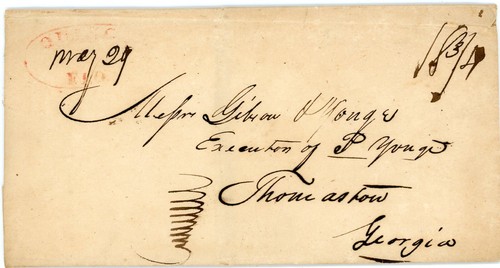 QUINCY
Flo.
May 29
18 3/4
Messrs Gibson & Yonge
Executors of P Yonge
Thomaston
Georgia